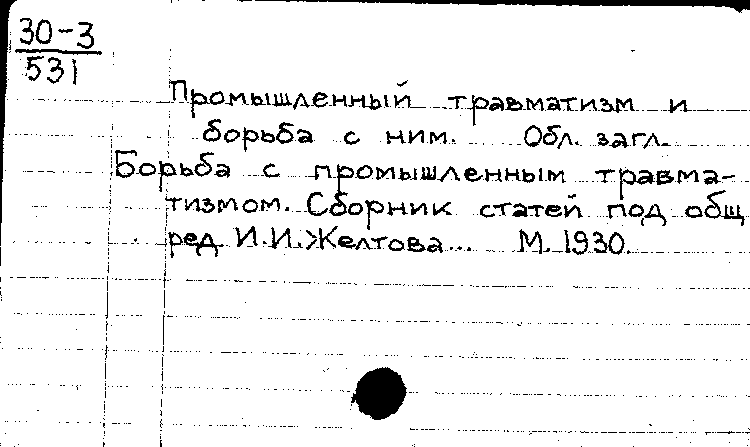 30-3
531
Промышленный травматизм и
борьба с ним. Обл. загл.
Борьба с промышленным травма-
тизмом. Сборник статей под общ
ред И.И.Желтова... М. 1930.